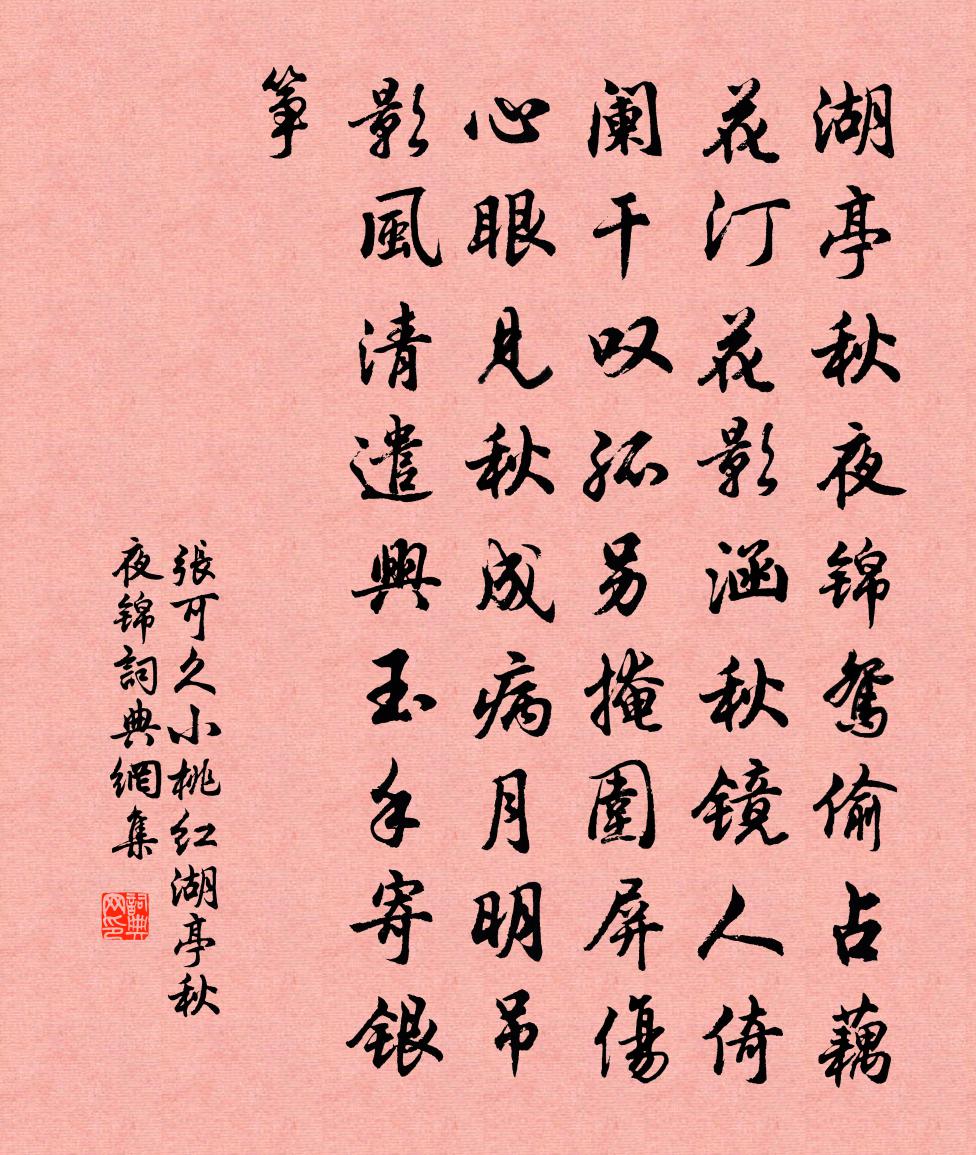 湖亭秋夜锦鸳偷占藕
花汀花影涵秋镜人倚
阑干叹孤另掩圍屏傷
心眼見秋成病月明吊
影風清遣興玉手寄銀
筝
張可久小桃红湖亭秋
夜锦詞典網集
詞典网印